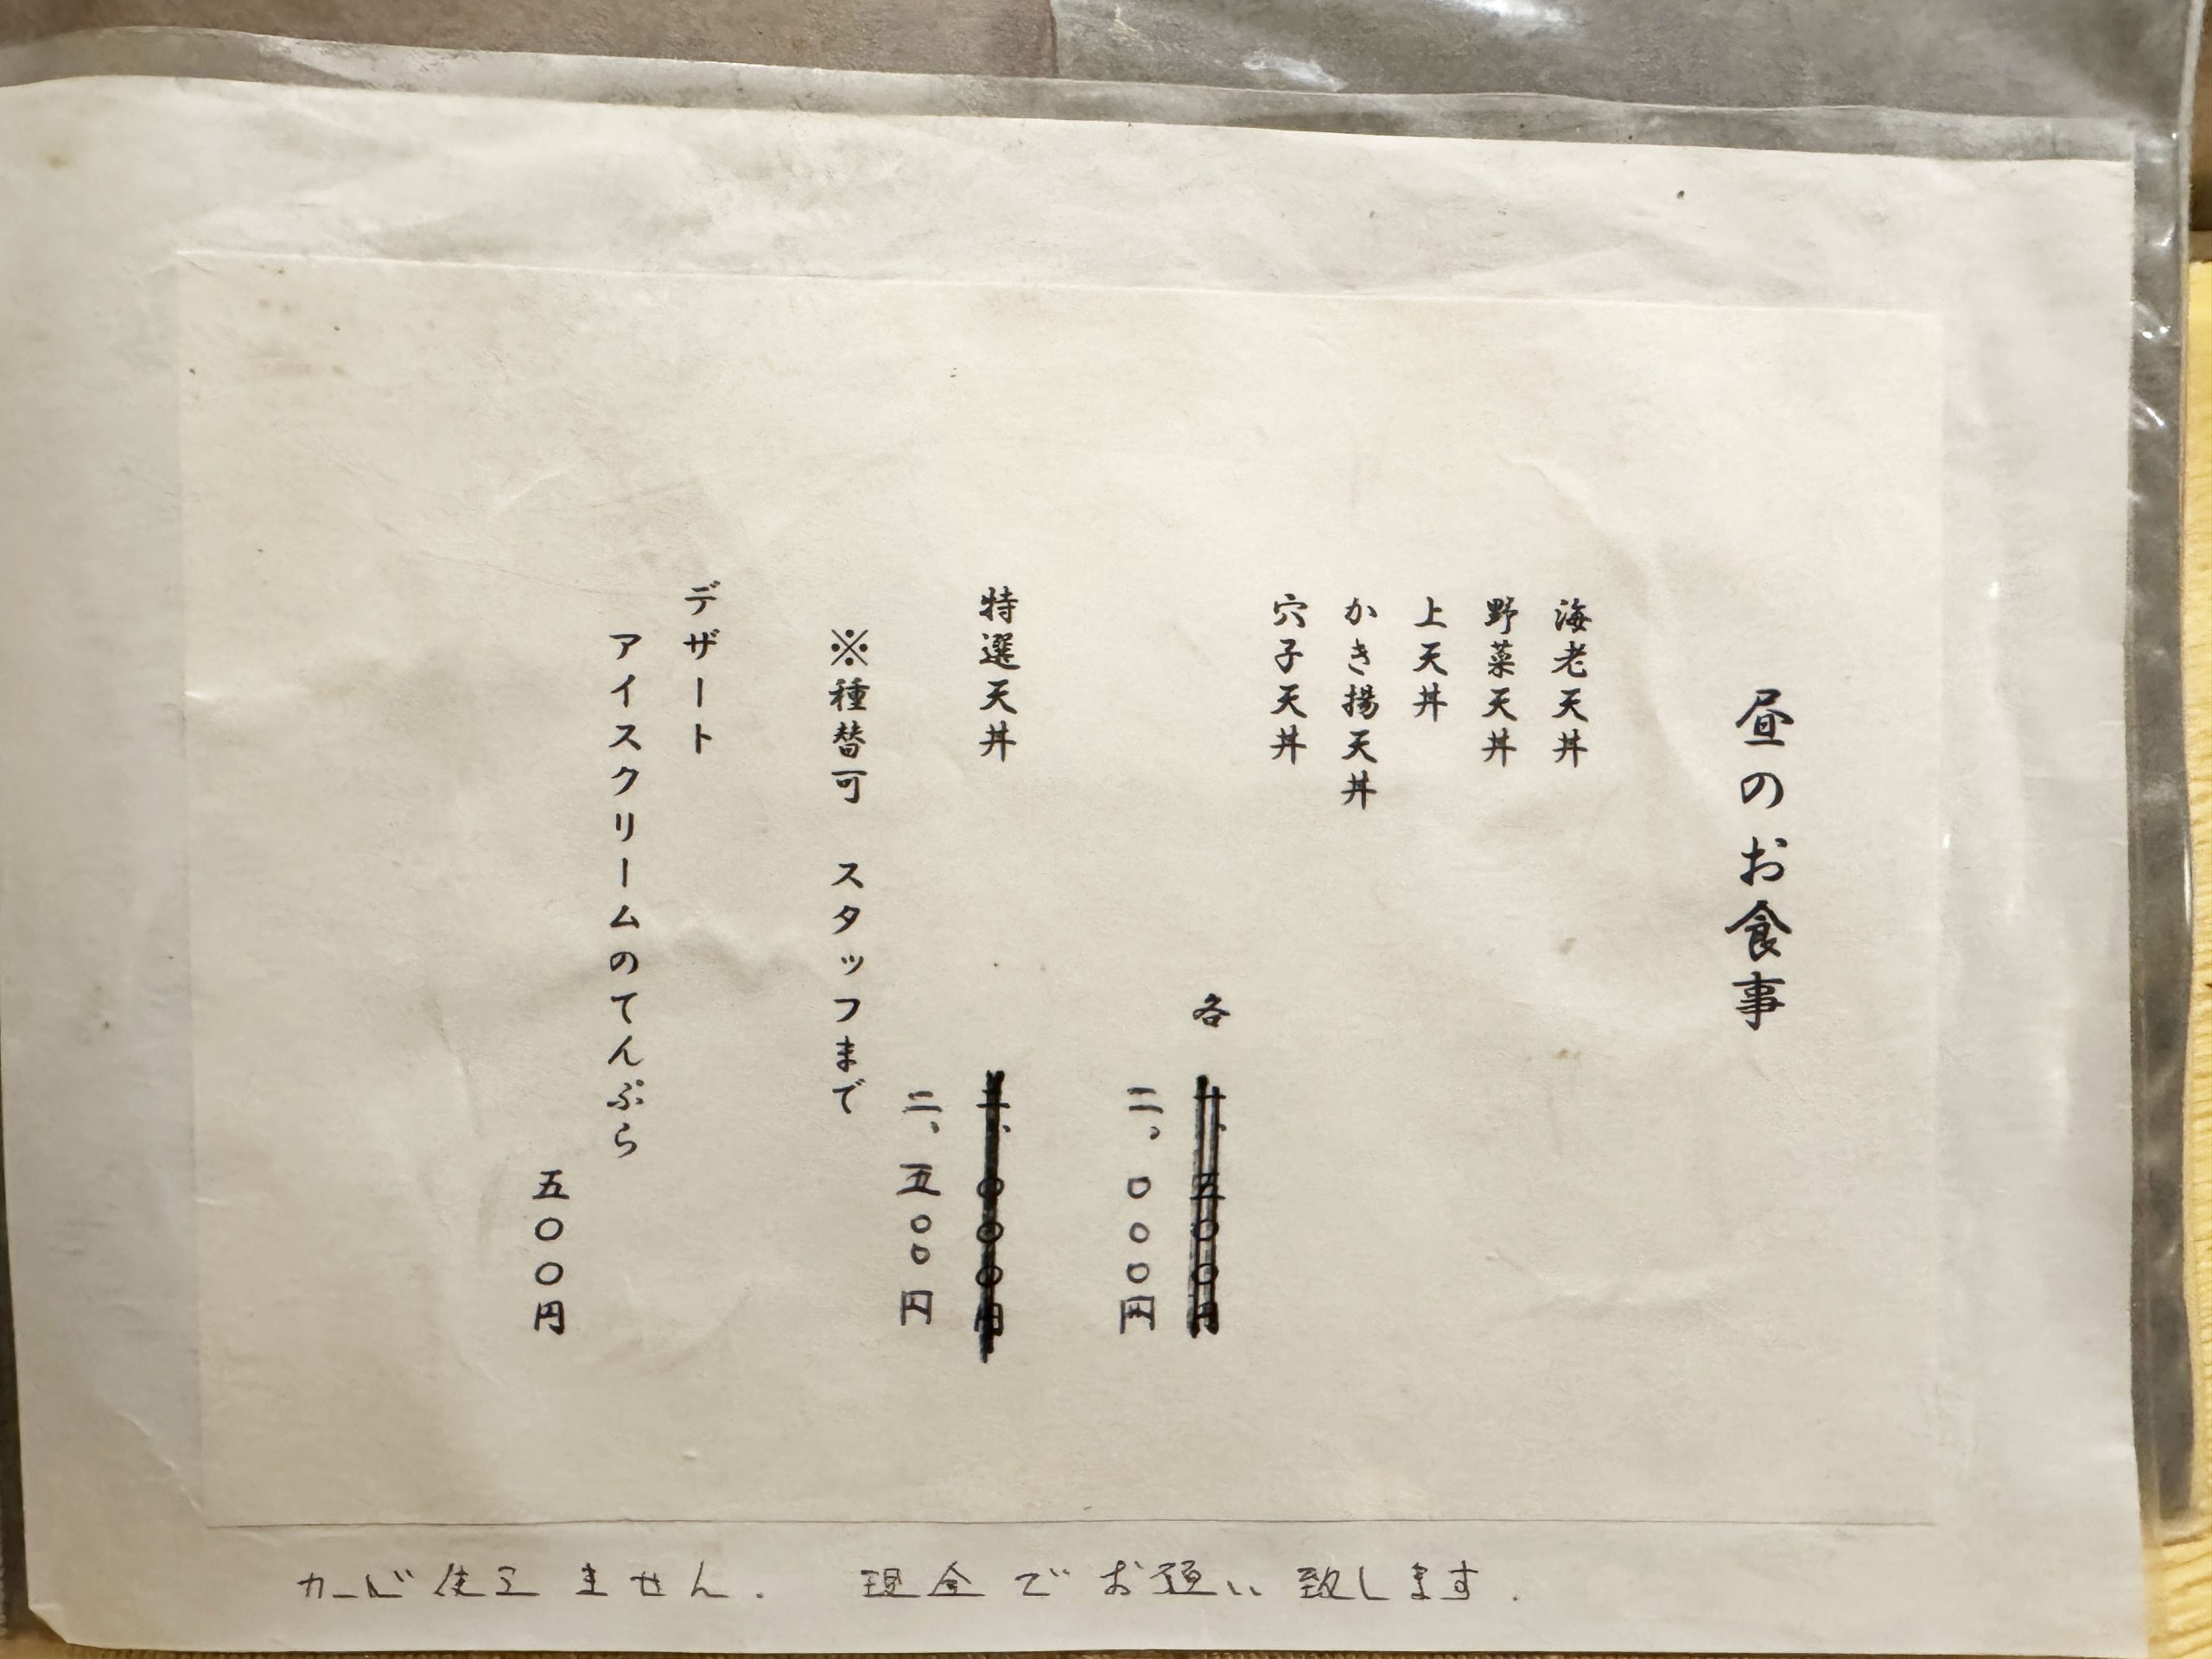 昼のお食事
海老天丼
野菜天丼
上天丼
かき揚天丼
穴子天丼
各
二、〇〇〇円
特選天丼
二、五〇〇円
※種替可　スタッフまで
デザート
アイスクリームのてんぷら
五〇〇円
カード使えません.　現金でお願い致します.